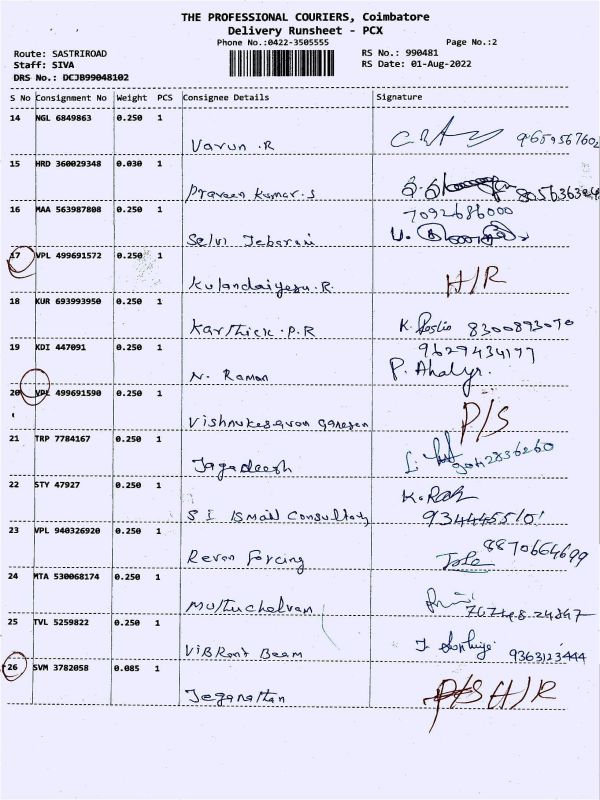 THE PROFESSIONAL COURIERS, Coimbatore
Delivery Runsheet - PCX
Phone No.:0422-3505555
Page No.:2
Route: SASTRIROAD
RS No.: 990481
Staff: SIVA
RS Date: 01-Aug-2022
DRS No.: DCJB99048102
S No Consignment No Weight PCS Consignee Details Signature
14 NGL 6849863 0.250 1
Varun .R
15 HRD 360029348 0.030 1
Praveen Kumar.S
16 MAA 563987808 0.250 1
7092686000
Selvi Jebarani
17 VPL 499691572 0.250 1
Kulandaiyesu.R H/R
18 KUR 693993950 0.250 1
Karthick.P.R 8300893070
19 KDI 447091 0.250 1
9629434177
N. Raman P. Ahalya.
20 VPL 499691590 0.250 1
Vishnukesavan Ganesan P/S
21 TRP 7784167 0.250 1
Jagadeesh
22 STY 47927 0.250 1
S I Ismail Consultacy 9344455101
23 VPL 940326920 0.250 1
8870664699
Revon Forcing
24 MTA 530068174 0.250 1
Muthuchelvan
25 TVL 5259822 0.250 1
Vibrant Beam 9363123444
26 SVM 3782058 0.085 1
Jeganathan P/S H/R